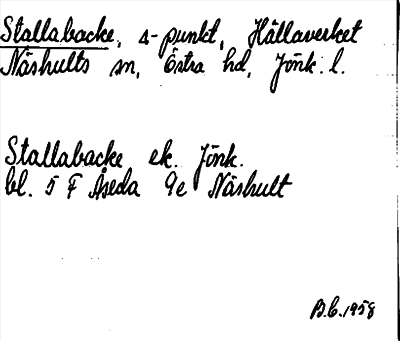 Stallabacke, s-punkt, Hällaverket
Näshults sn, Östra hd, Jönk. l.
Stallabacke ek. Jönk.
bl. 5 F Åseda 9e Näshult
B.C. 1958